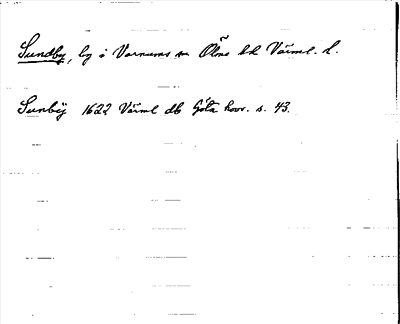 Sundby, by i Varnums sn Ölme hd Värml. l.
Sunbÿ 1622 Värml db Göta hovr. s. 43.